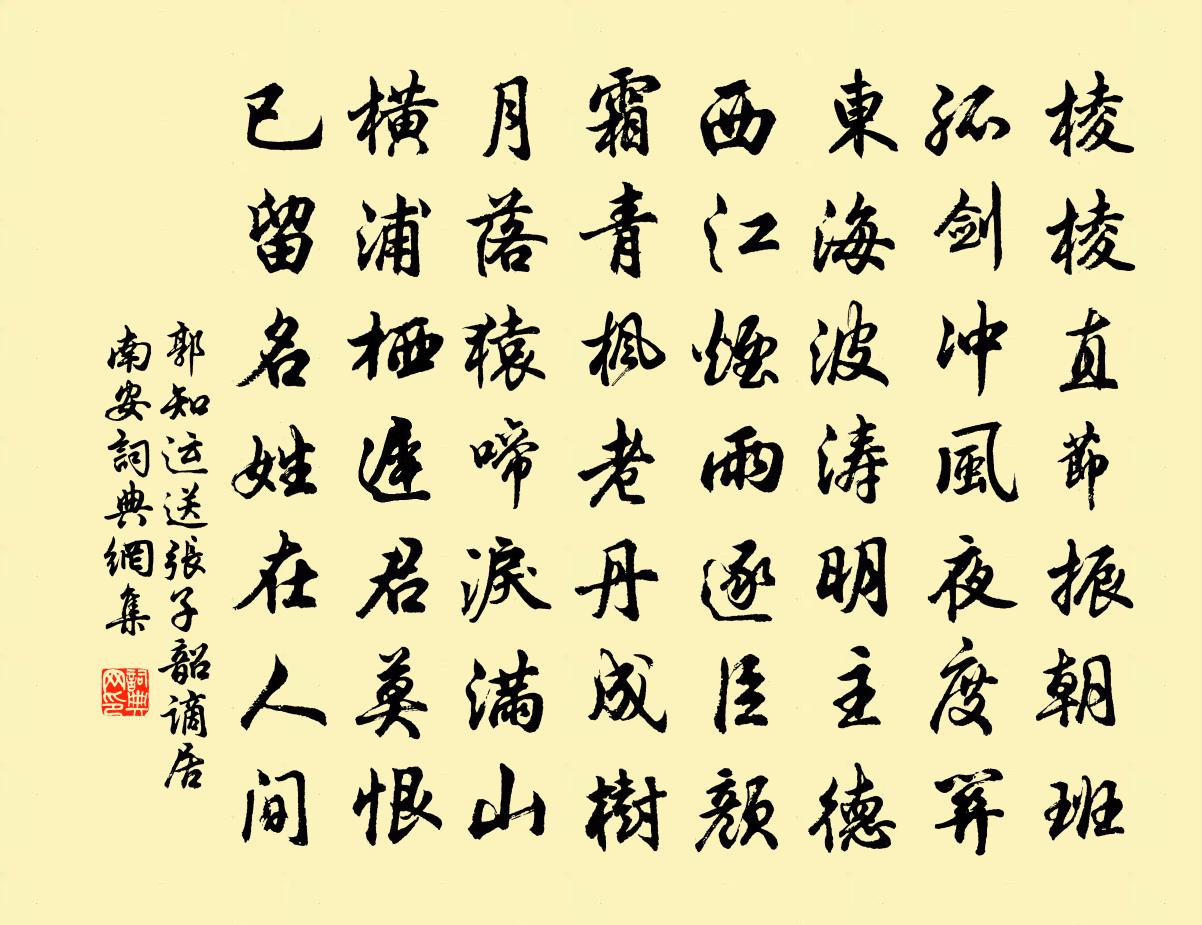 棱棱直節振朝班
孤剑冲風夜度関
東海波涛明主德
西江煙雨逐臣顏
霜青楓老丹成樹
月落猿啼淚滿山
横浦栖遲君莫恨
已留名姓在人間
郭知运送張子韶謫居
南安詞典網集
詞典
网印